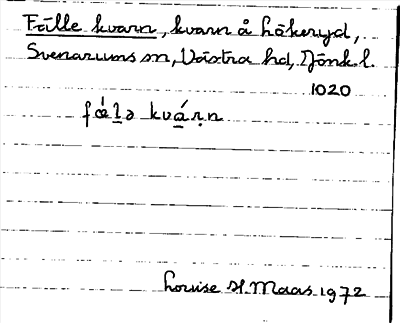 Fälle kvarn, kvarn å Håkeryd,
Svenarums sn, Västra hd, Jönk. l.
1020
fǽlə kvárn
Louise H. Maas 1972